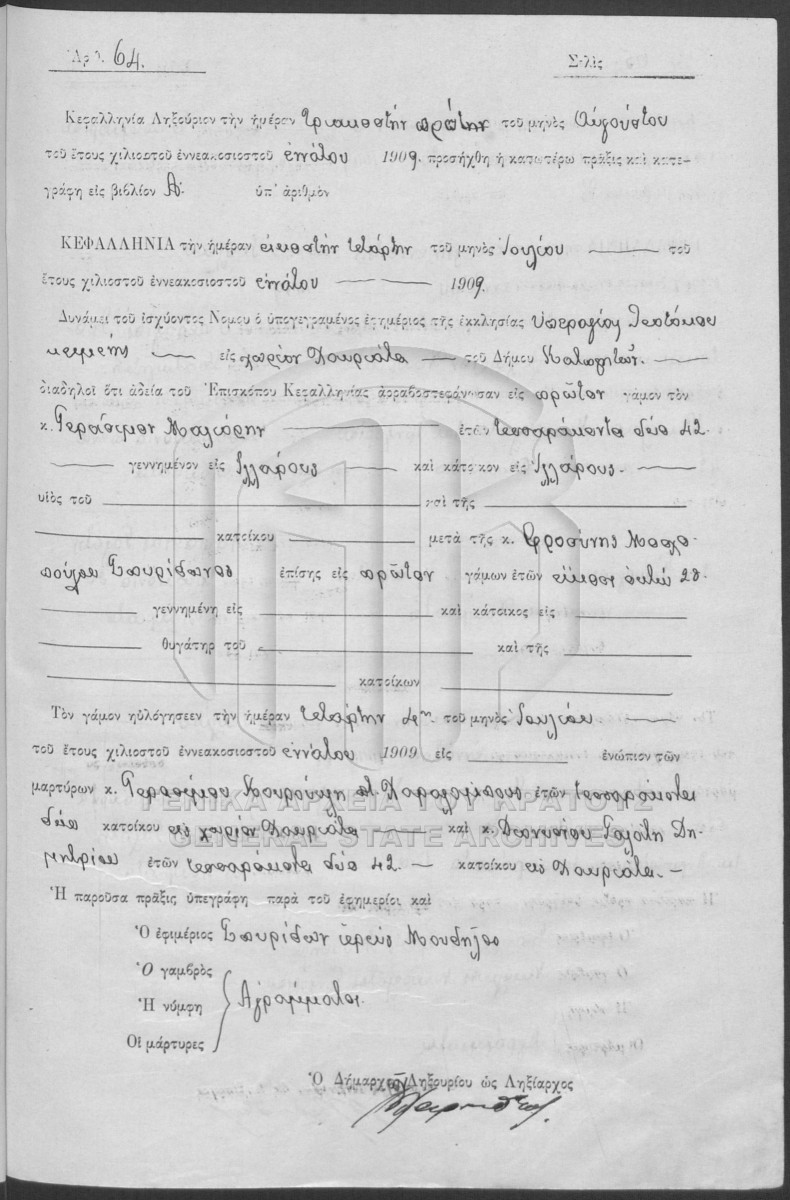 Ἀρθ. 64.
Σελὶς
Κεφαλληνία Ληξούριον τὴν ἡμέραν τριακοστὴν πρώτην τοῦ μηνὸς Αὐγούστου
τοῦ ἔτους χιλιοστοῦ ἐννεακοσιοστοῦ ἐννάτου 1909. προσήχθη ἡ κατωτέρω πρᾶξις καὶ κατε-
γράφη εἰς βιβλίον Α΄. ὑπ᾽ ἀριθμὸν
ΚΕΦΑΛΛΗΝΙΑ τὴν ἡμέραν εἰκοστὴν τετάρτην τοῦ μηνὸς Ἰουλίου τοῦ
ἔτους χιλιοστοῦ ἐννεακοσιοστοῦ ἐννάτου 1909.
Δυνάμει τοῦ ἰσχύοντος Νομου ὁ ὑπογεγραμένος ἐφημέριος τῆς ἐκκλησίας Ὑπεραγίας Θεοτόκου
εἰς χωρίον Χαυριάτα τοῦ Δήμου Κατωγῆς
διαδηλοῖ ὅτι ἀδεία τοῦ Ἐπισκόπου Κεφαλληνίας ἀρραβοστεφάνωσαν εἰς πρῶτον γάμον τὸν
κ. Γεράσιμον ἐτῶν τεσσαράκοντα δύο 42.
γεννημένον εἰς Ἰλλάρους καὶ κάτοικον εἰς Ἰλλάρους.
υἱὸς τοῦ καὶ τῆς
κατοίκου μετὰ τῆς κ. Φροσύνης
Σπυρίδωνος ἐπίσης εἰς πρῶτον γάμων ἐτῶν εἴκοσι ὀκτώ 28.
γεννημένη εἰς καὶ κάτοικος εἰς
θυγάτηρ τοῦ καὶ τῆς
κατοίκων
Τὸν γάμον ηὐλόγησεεν τὴν ἡμέραν τετάρτην 4ην τοῦ μηνὸς Ἰουλίου
τοῦ ἔτους χιλιοστοῦ ἐννεακοσιοστοῦ ἐννάτου 1909 εἰς ἐνώπιον τῶν
μαρτύρων κ. Γερασίμου Χαραλάμπους ἐτῶν τεσσαράκοντα
δύο κατοίκου εἰς χωρίον Χαυριάτα καὶ κ. Διονυσίου Δη-
μητρίου ἐτῶν τεσσαράκοντα δύο 42. κατοίκου εἰς Χαυριάτα.
ΓΕΝΙΚΑ ΑΡΧΕΙΑ ΤΟΥ ΚΡΑΤΟΥΣ
GENERAL STATE ARCHIVES
Ἡ παροῦσα πρᾶξις ὑπεγράφη παρὰ τοῦ ἐφημερίοι καὶ
Ὁ ἐφιμέριος Σπυρίδων ἱερεὺς
Ὁ γαμβρὸς
Ἡ νύμφη Ἀγράμματοι.
Οἱ μάρτυρες
Ὁ Δήμαρχος Ληξουρίου ὡς Ληξίαρχος